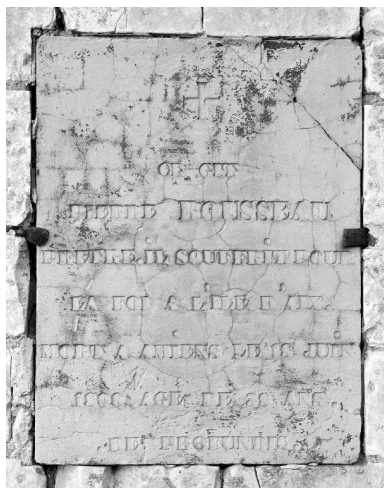 CI GIT
PIERRE ROUSSEAU
PRETRE IL SOUFFRIT POUR
LA FOI A L'ILE D'AIX
MORT A AMIENS LE JUIN
AGE DE ANS
DE PROFUNDIS